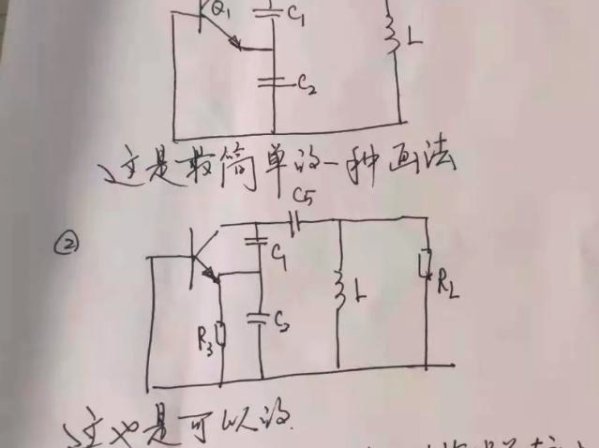 Q1
C1
L
C2
这是最简单的一种画法
C5
②
C1
L
RL
R3
C2
这也是可以的.